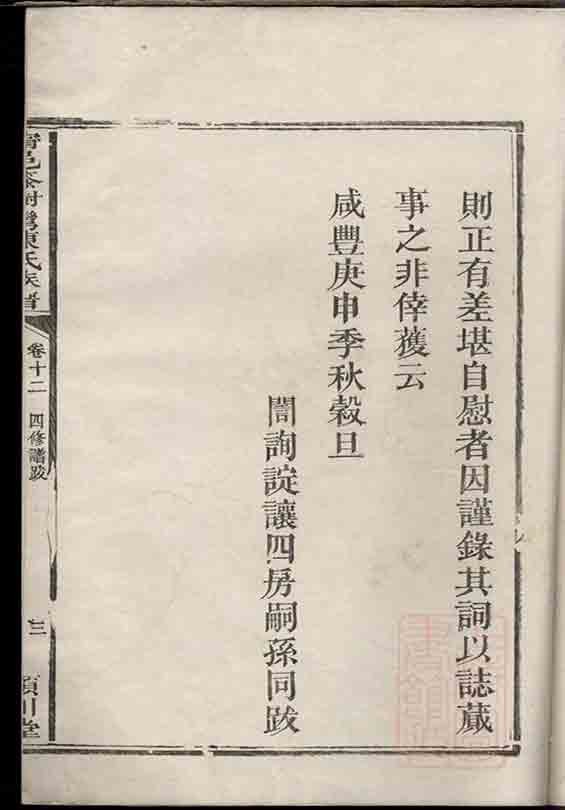 則正有差堪自慰者因謹錄其詞以誌蕆
事之非倖獲云
咸豐庚申季秋穀旦
誾詢諚讓四房嗣孫同跋
陳氏族譜
卷十二 四修譜跋
三
潁川堂